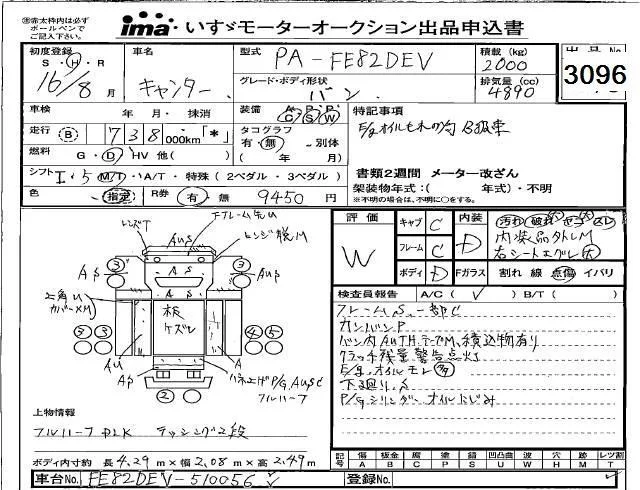 ㊟赤太枠内は必ず
ボールペンで
ご記入下さい。
ima いすゞモーターオークション出品申込書
初度登録
S・H・R
16年 8月
車名
キャンター
型式
PA-FE82DEV
積載 (kg)
2000
出品No
3096
グレード・ボディ形状
バン
排気量 (cc)
4890
車検 年 月・抹消
装備 A/C P/S P/W
特記事項
E/gオイルもれの為 B扱車
走行 B 738 000km「*」
タコグラフ
有・無・別体
( 年 月)
燃料 G・D・HV 他( )
書類2週間 メーター改ざん
シフト I・5 M/T・A/T・特殊(2ペダル・3ペダル)
架装物年式:( 年式)・不明
※不明の場合は、不明に○をする。
色 ・指定
R券 有・無 9450円
評価
W
キャブ C
フレーム C
ボディ D
内装 D
汚れ 破れ コゲ スレ
内装品外しM
右シートエグレ大
Fガラス 割れ 線 点傷 イバリ
検査員報告 A/C( ✓ ) B/T( )
フレームS、一部C
カンバンP
バン内AUTH、テープM、積込物有り
クラッチ残量警告点灯
E/g、オイルモレ 多
下廻り、S
P/Gシリンダーオイルにじみ
レンズT
下フレーム先U
AUS
レンジ脱M
3
3
AS
AUS
AS
A S
三角U
カバーXM
板
ケズレ
2
2
4
5
AU
A
AS
2
ハネ上げP/G、AUSC
フルハーフ
上物情報
フルハーフ DLK ラッシング2段
ボディ内寸約 長4.29m×幅2.08m×高2.49m
記号 傷 A 凹 B 腐 C 塗 P 錆 S 凹凸曲 U 波 W 穴 H 跡 M レツ割 T
車台No. FE82DEV-510056 ✓
登録No.